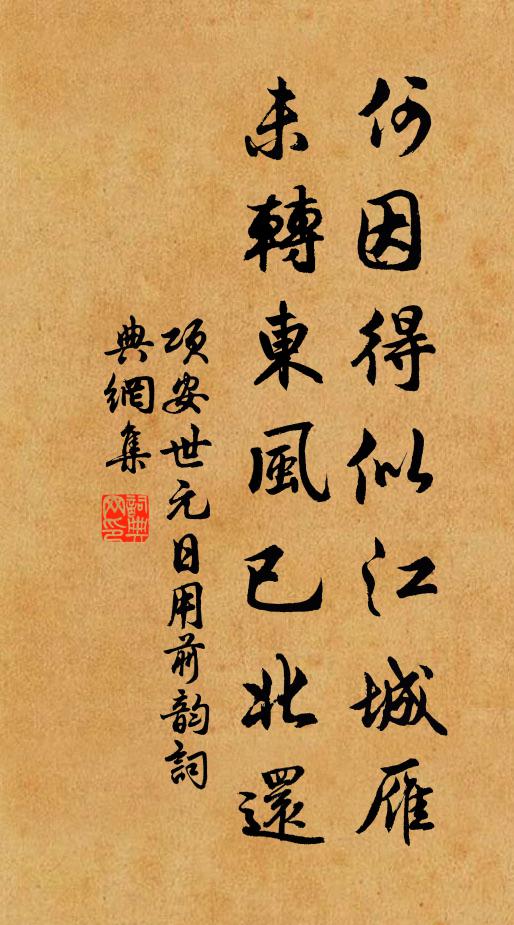 何因得似江城雁
未轉東風已北還
項安世元日用前韵詞
典網集
詞典
网印